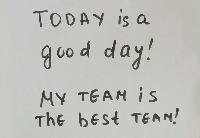 TODAY is a
good day!
MY TEAM is
The best TEAM!